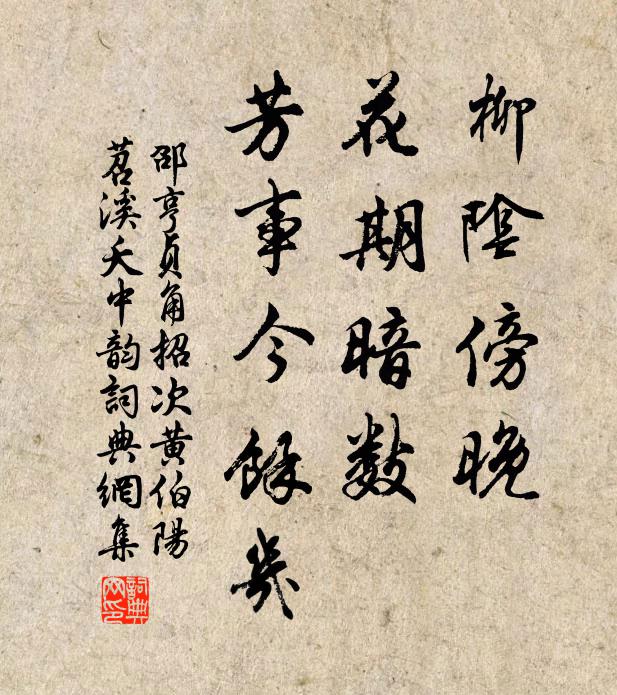 柳陰傍晚
花期暗數
芳事今餘幾
邵亨貞角招次黃伯陽
苕溪夭中韵詞典網集
詞典网印